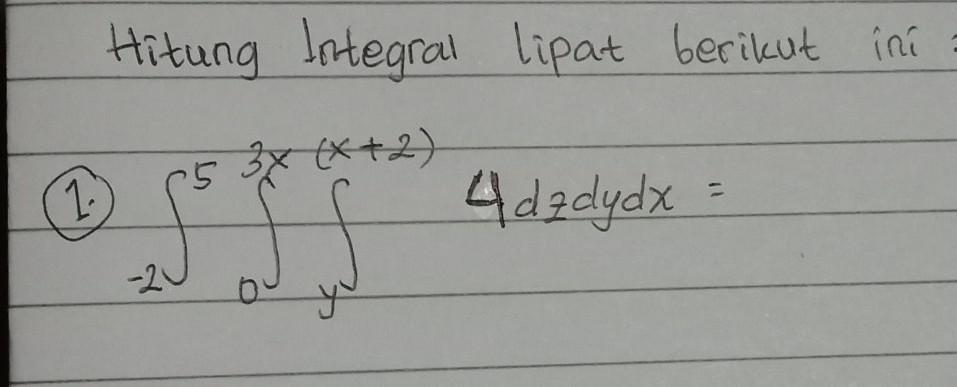 Hitung Integral lipat berikut ini :
1. ∫_{-2}^{5} ∫_{0}^{3x} ∫_{y}^{(x+2)} 4 dz dy dx =